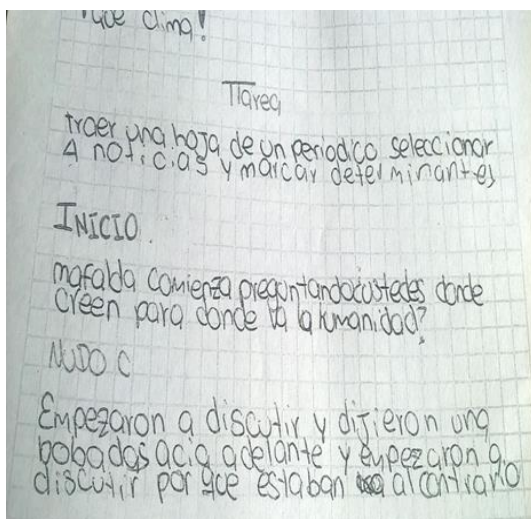 que clima!
Tarea
traer una hoja de un periodico seleccionar
4 noticias y marcar determinantes
INICIO.
mafalda comienza preguntando ustedes donde
creen para donde va la humanidad?
NUDO C
Empezaron a discutir y dijieron una
bobadas acia adelante y empezaron a
discutir por que estaban al contrario